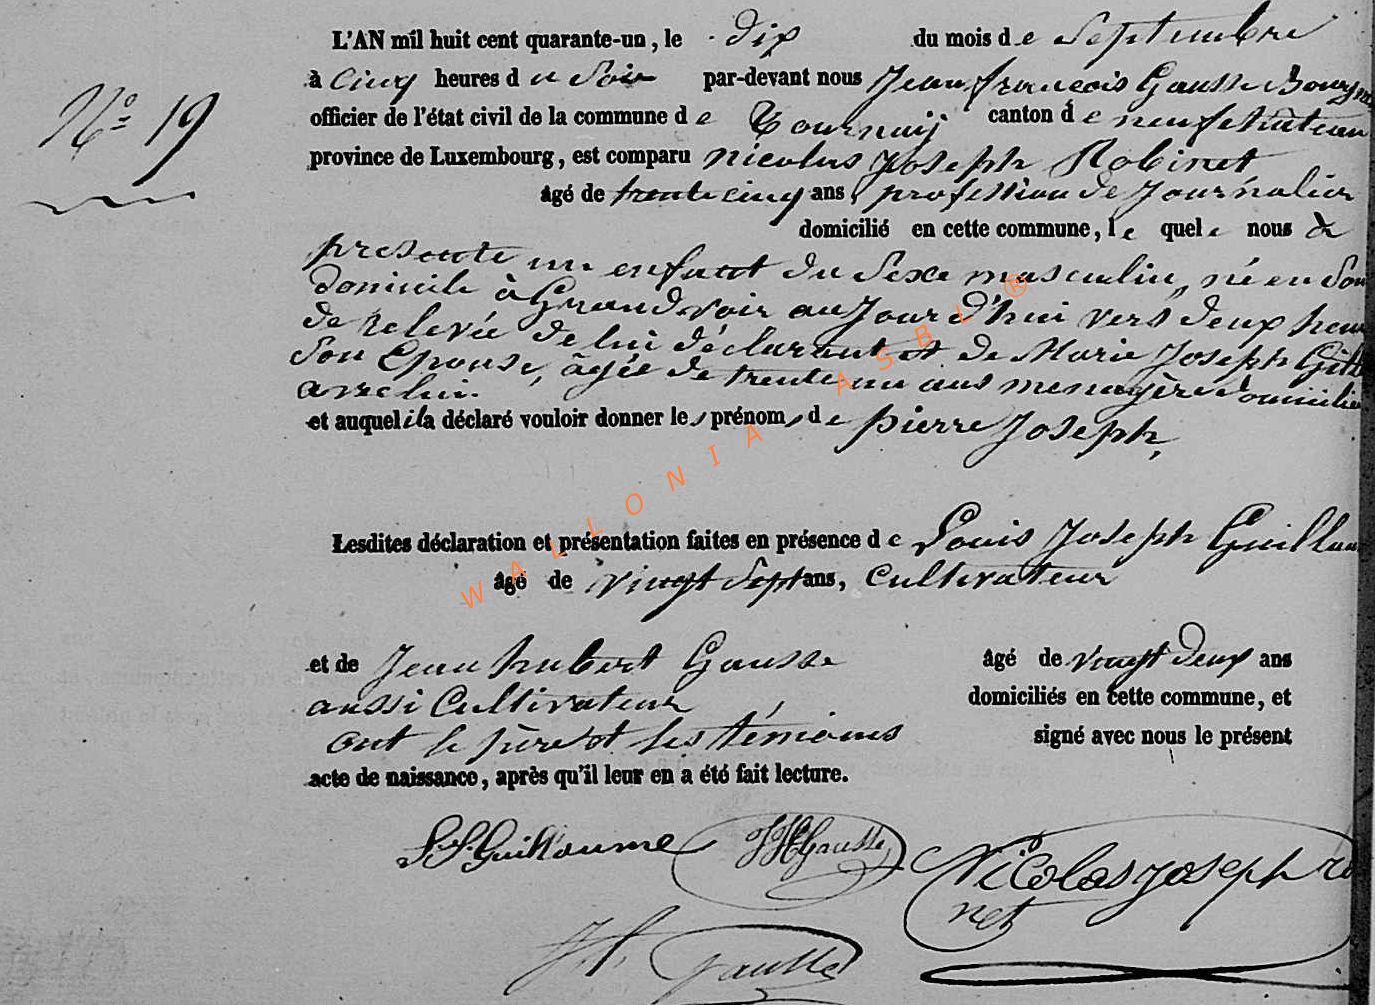 L'AN mil huit cent quarante-un, le dix du mois de Septembre
N° 19
à cinq heures du Soir par-devant nous Jean françois Gausse Bourgm
officier de l'état civil de la commune de Tournaÿ canton de neufchâteau
province de Luxembourg, est comparu nicolas Joseph Robinet
âgé de trente cinq ans, profession de Journalier
domicilié en cette commune, le quel nous a
presenté un enfant du Sexe masculin, né en Son
domicile à Grandvoir aujourd'hui vers deux heur
de relevée de lui déclarant et de Marie Joseph
Son Epouse, âgée de trente un ans menagère domicilié
avec lui.
et auquel il a déclaré vouloir donner les prénoms de pierre Joseph,
Lesdites déclaration et présentation faites en présence de Louis Joseph Guillau
âgé de vingt Sept ans, cultivateur
et de Jean hubert Gausse âgé de vingt deux ans
aussi Cultivateur domiciliés en cette commune, et
ont le père et les témoins signé avec nous le présent
acte de naissance, après qu'il leur en a été fait lecture.
L J Guillaume JH Gausse Nicolas joseph ro
net
J f Gausse
WALLONIA ASBL ®